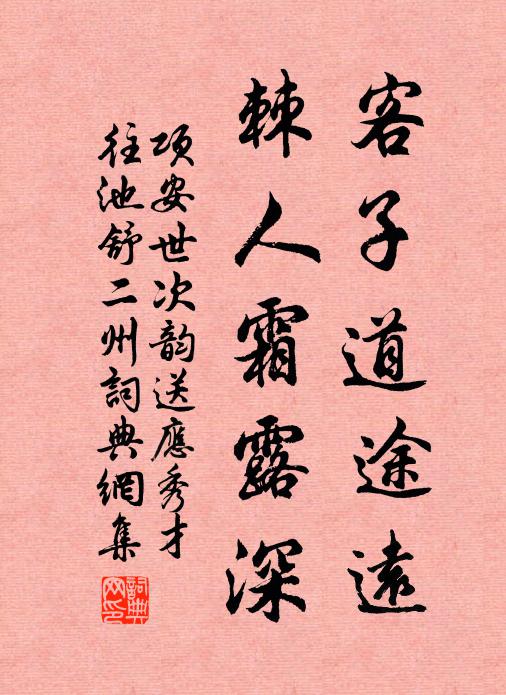 客子道途遠
棘人霜露深
項安世次韵送應秀才
往池舒二州詞典網集
詞典
网印